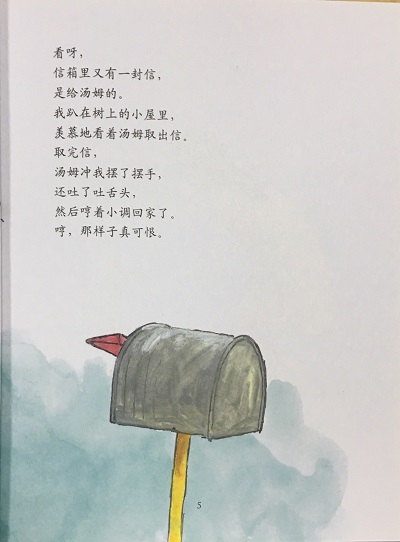 看呀，
信箱里又有一封信，
是给汤姆的。
我趴在树上的小屋里，
羡慕地看着汤姆取出信。
取完信，
汤姆冲我摆了摆手，
还吐了吐舌头，
然后哼着小调回家了。
哼，那样子真可恨。
5